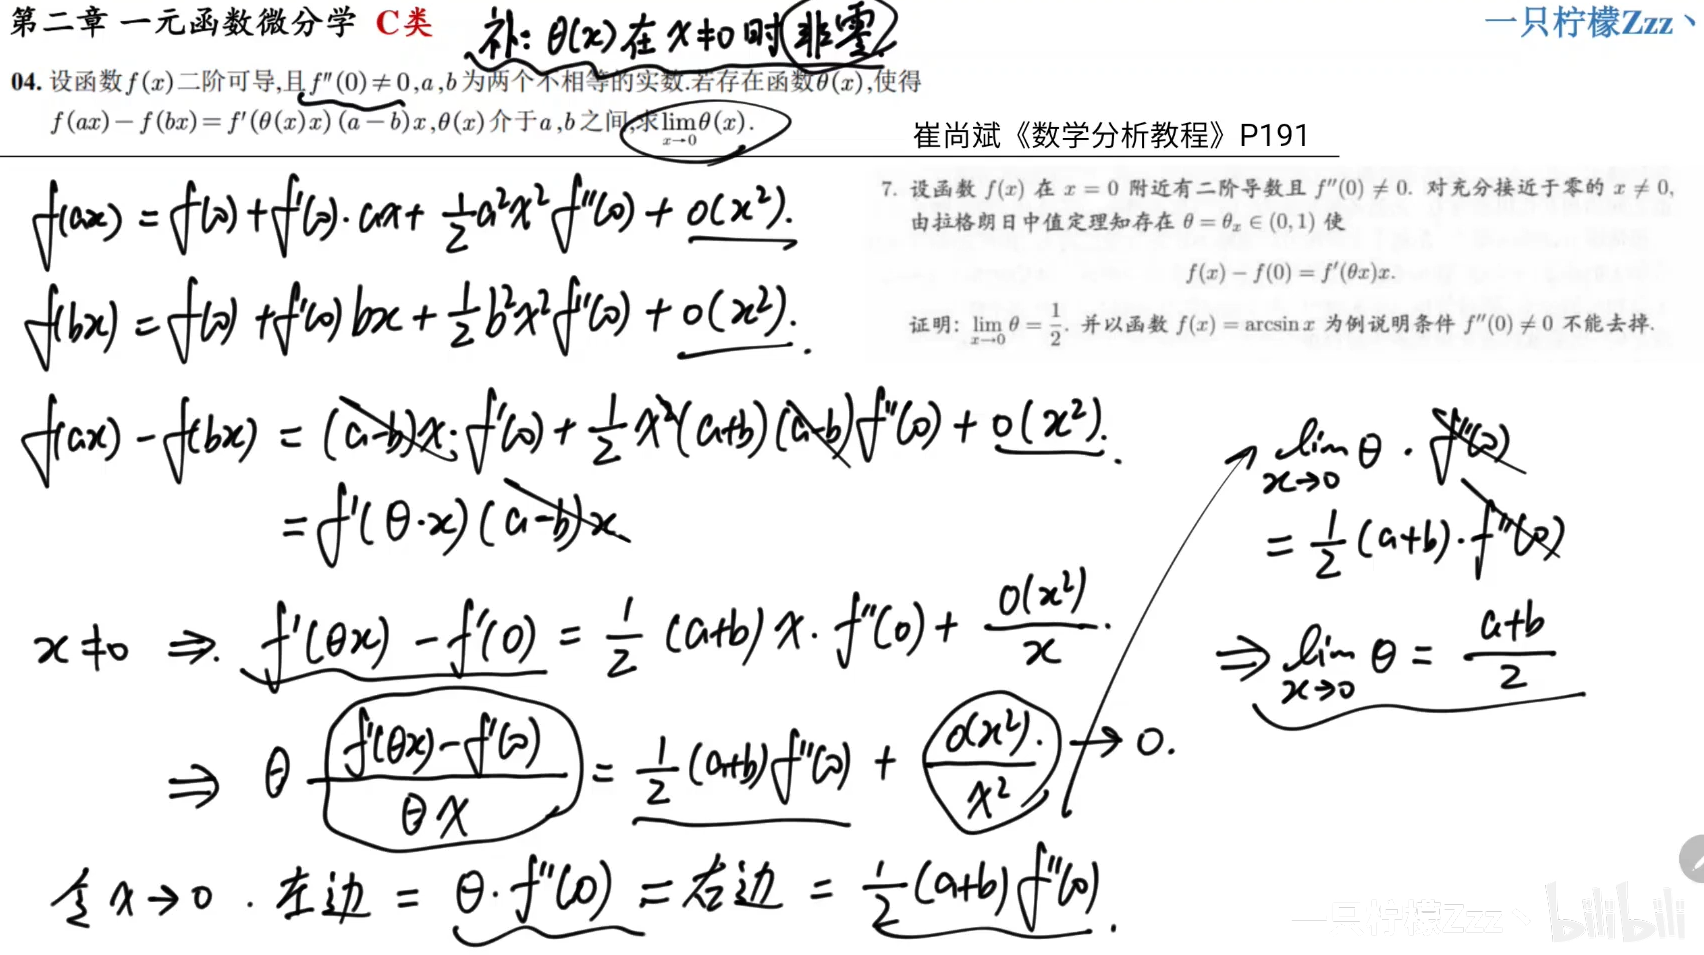 第二章 一元函数微分学 C类
补: θ(x) 在 x≠0 时 非零.
一只柠檬Zzz丶
04. 设函数f(x)二阶可导,且f″(0)≠0,a,b为两个不相等的实数.若存在函数θ(x),使得
f(ax)−f(bx)=f′(θ(x)x)(a−b)x,θ(x)介于a,b之间,求lim x→0 θ(x).
崔尚斌《数学分析教程》P191
7. 设函数 f(x) 在 x = 0 附近有二阶导数且 f″(0) ≠ 0. 对充分接近于零的 x ≠ 0,
由拉格朗日中值定理知存在 θ = θₓ ∈ (0,1) 使
f(x) − f(0) = f′(θx)x.
证明: lim x→0 θ = 1/2. 并以函数 f(x) = arcsin x 为例说明条件 f″(0) ≠ 0 不能去掉.
f(ax) = f(0) + f′(0)·ax + 1/2 a²x² f″(0) + o(x²).
f(bx) = f(0) + f′(0) bx + 1/2 b²x² f″(0) + o(x²).
f(ax) − f(bx) = (a−b)x·f′(0) + 1/2 x²(a+b)(a−b) f″(0) + o(x²).
= f′(θ·x)(a−b)x
x≠0 ⇒. f′(θx) − f′(0) = 1/2 (a+b) x·f″(0) + o(x²)/x.
⇒ θ (f′(θx)−f′(0))/(θx) = 1/2 (a+b) f″(0) + o(x²)./x² → 0.
令 x→0. 左边 = θ·f″(0) = 右边 = 1/2 (a+b) f″(0).
lim x→0 θ · f″(0)
= 1/2 (a+b)·f″(0)
⇒ lim x→0 θ = (a+b)/2
一只柠檬Zzz丶 bilibili